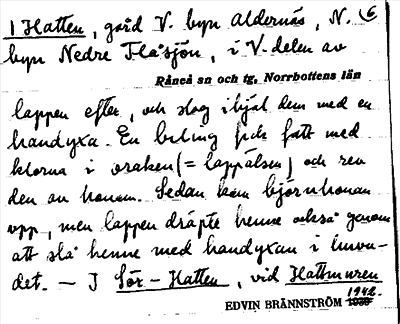 1 Hatten, gård V. byn Aldernäs, N. 6
byn Nedre Flåsjön, i V-delen av
Råneå sn och tg, Norrbottens län
lappen efter, och slog ihjäl dem med en
handyxa. En biling fick fatt med
klorna i oraken (= lappälsen) och rev
den av honom. Sedan kom björnhonan
upp, men lappen dräpte henne också genom
att slå henne med handyxan i huvu-
det. — I Sör-Hatten, vid Hattmuren
1942.
EDVIN BRÄNNSTRÖM 1939